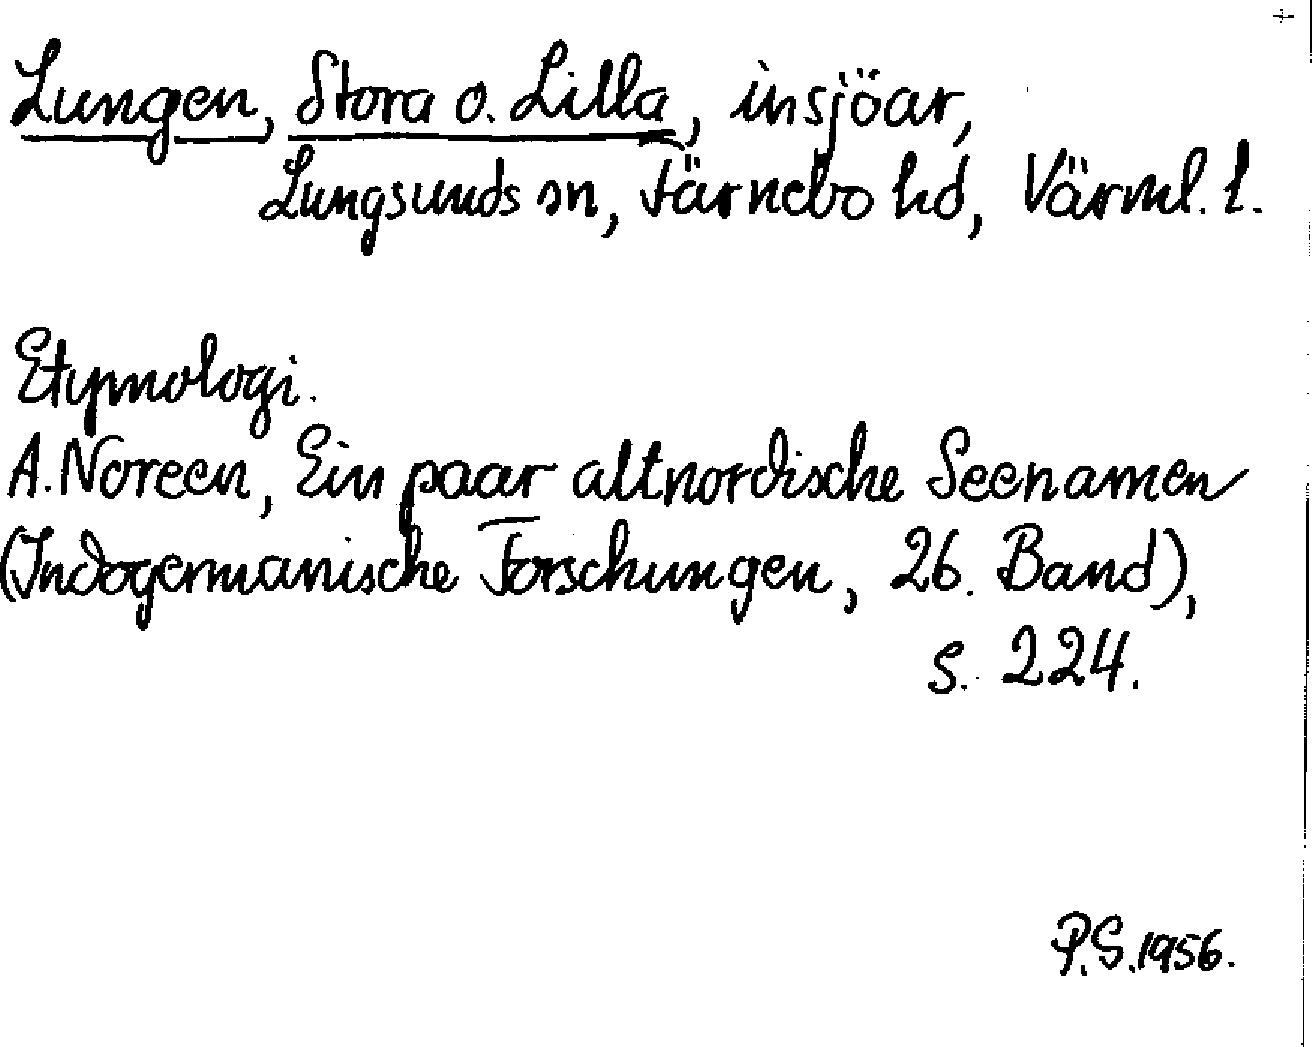 Lungen, Stora o. Lilla, insjöar,
Lungsunds sn, Färnebo hd, Värml. l.
Etymologi.
A. Noreen, Ein paar altnordische Seenamen
(Indogermanische Forschungen, 26. Band),
s. 224.
P.S. 1956.